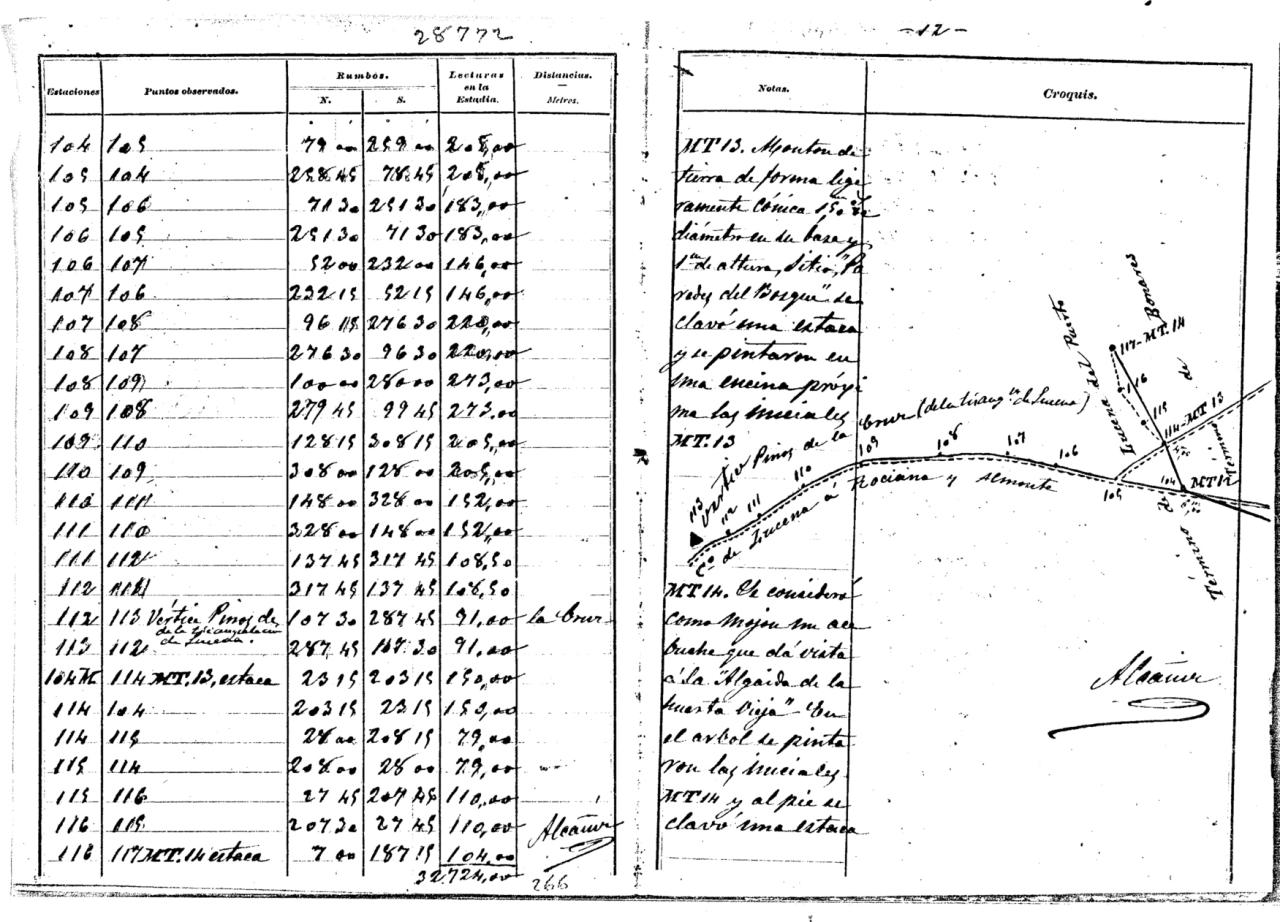 28772
Estaciones Puntos observados. Rumbos. Lecturas en la Estadia. Distancias.
N. S. Metros.
104 105 79 00 259 00 205,00
105 104 258 45 78 45 205,00
105 106 71 30 251 30 183,00
106 105 251 30 71 30 183,00
106 107 52 00 232 00 146,00
107 106 232 15 52 15 146,00
107 108 96 15 276 30 220,00
108 107 276 30 96 30 220,00
108 109 100 00 280 00 273,00
109 108 279 45 99 45 273,00
109 110 128 15 308 15 205,00
110 109 308 00 128 00 205,00
110 111 148 00 328 00 152,00
111 110 328 00 148 00 152,00
111 112 137 45 317 45 108,50
112 111 317 45 137 45 108,50
112 113 Vértice Pinos de la Cruz 107 30 287 45 91,00
de la triangulacion
de Lucena.
113 112 287 45 107 30 91,00
104 M 114 MT. 13, estaca 23 15 203 15 150,00
114 104 203 15 23 15 150,00
114 115 28 00 208 15 79,00
115 114 208 00 28 00 79,00
115 116 27 45 207 45 110,00
116 115 207 30 27 45 110,00
116 117 MT. 14 estaca 7 00 187 15 104,00
32.724,00
Alcañiz
266
-12-
Notas. Croquis.
MT 13. Monton de
tierra de forma lige
ramente cónica 1,50 m de
diámetro en su base y
1m de altura, Sitio, "Pa
redes del Bosque" se
clavó una estaca
y se pintaron en
una encina próxi
ma las iniciales
MT. 13
MT 14. Se consideró
como mojon un ace
buche que dá vista
á la "Algaida de la
huerta Vieja" - En
el arbol se pinta
ron las iniciales
MT 14 y al pie se
clavó una estaca
Lucena del Puerto
Bonares
117-MT. 14
116
115
114-MT 13
de
Término
109
108
107
106
105
104
MT 12
113
112
111
110
Vertice Pinos de la Cruz (de la triangon de Lucena)
Co de Lucena á Rociana y Almonte
Término de
Alcañiz